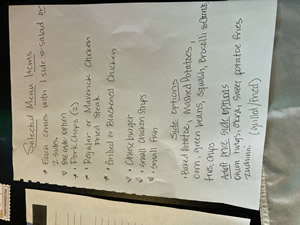 Selected Menu Items
* Each comes with 1 side + salad or
2 sides
* Pork Chops (2)
* Regular or Maverick Chicken
Fried Steak
* Grilled or Blackened Chicken
* Cheeseburger
* Small Chicken Strips
* Small Fish
Side options
• Baked Potatoes, Mashed Potatoes,
corn, green beans, squash, Brocolli
fries, chips
Add'l price side options
Onion rings, okra, sweet potatoe fries
zucchini (grilled/fried)